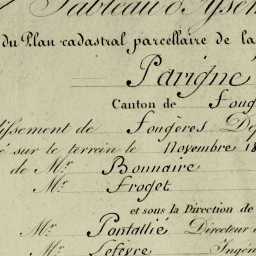 Tableau d'Assem
du Plan cadastral parcellaire de la
Parigné
Canton de Foug
issement de Fougères Dép
é sur le terrain le Novembre 18
de Mr. Bonnaire
Mr. Froget
et sous la Direction de
Mr. Pontallié Directeur d
Mr. Lefèvre Ingén